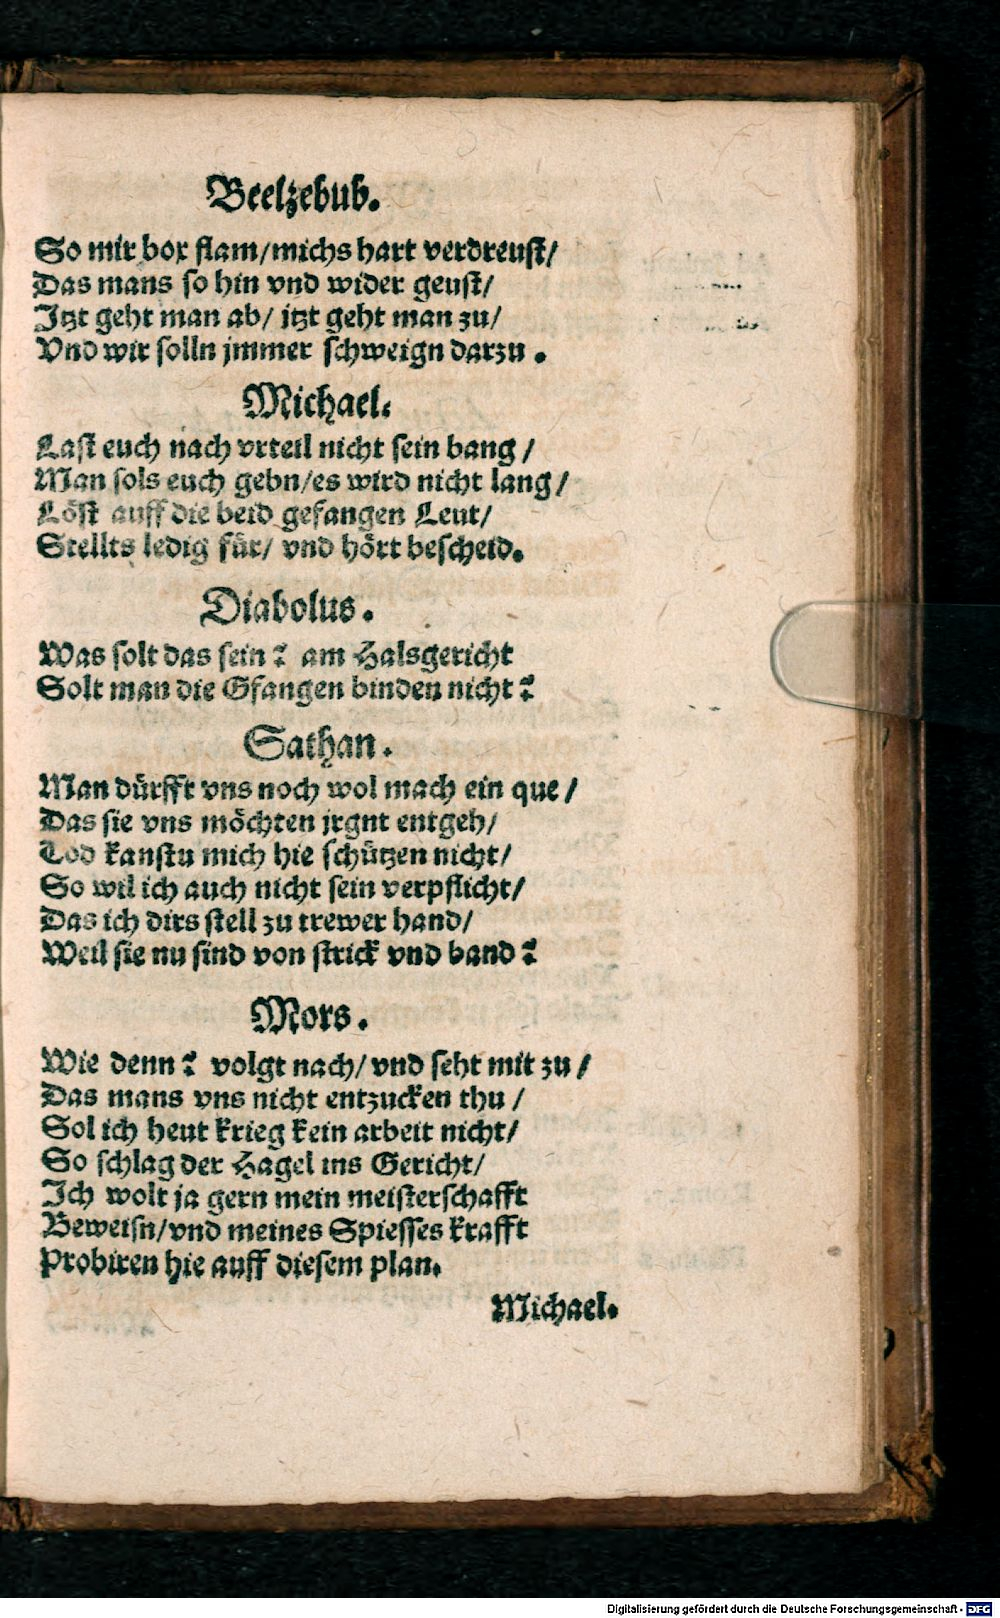 Beelzebub.
So mir box flam/michs hart verdreust/
Das mans so hin vnd wider geust/
Jtzt geht man ab/ jtzt geht man zu/
Vnd wir solln jmmer schweign darzu .
Michael.
Last euch nach vrteil nicht sein bang /
Man sols euch gebn/es wird nicht lang/
Löst auff die beid gefangen Leut/
Stellts ledig für/ vnd hört bescheid.
Diabolus.
Was solt das sein? am Halsgericht
Solt man die Gfangen binden nicht?
Sathan.
Man dürfft vns noch wol mach ein que/
Das sie vns möchten jrgnt entgeh/
Tod kanstu mich hie schützen nicht/
So wil ich auch nicht sein verpflicht/
Das ich dirs stell zu trewer hand/
Weil sie nu sind von strick vnd band?
Mors.
Wie denn? volgt nach/vnd seht mit zu/
Das mans vns nicht entzucken thu/
Sol ich heut krieg kein arbeit nicht/
So schlag der Hagel ins Gericht/
Ich wolt ja gern mein meisterschafft
Beweisn/vnd meines Spiesses krafft
Probiren hie auff diesem plan.
Michael.
Digitalisierung gefördert durch die Deutsche Forschungsgemeinschaft - DFG